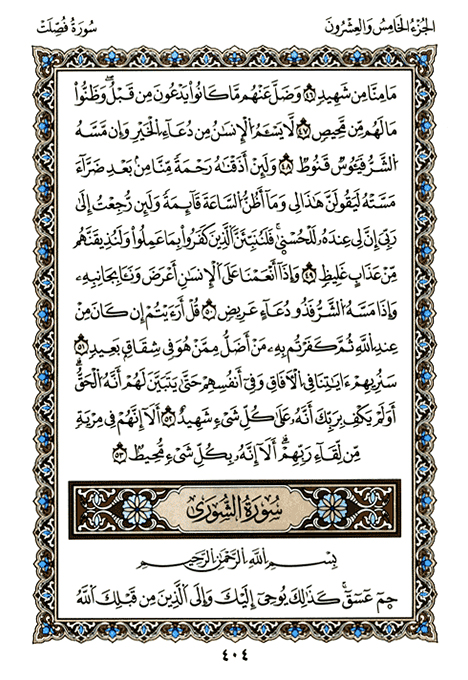 الجُزْءُ الخَامِسُ وَالعِشْرُونَ
سُورَةُ فُصِّلَتْ
مَا مِنَّا مِن شَهِيدٍ ٤٦ وَضَلَّ عَنْهُم مَّا كَانُواْ يَدْعُونَ مِن قَبْلُ وَظَنُّواْ
مَا لَهُم مِّن مَّحِيصٍ ٤٧ لَّا يَسْـَٔمُ الْإِنسَٰنُ مِن دُعَآءِ الْخَيْرِ وَإِن مَّسَّهُ
الشَّرُّ فَيَـُٔوسٌ قَنُوطٌ ٤٨ وَلَئِنْ أَذَقْنَٰهُ رَحْمَةً مِّنَّا مِن بَعْدِ ضَرَّآءَ
مَسَّتْهُ لَيَقُولَنَّ هَٰذَا لِي وَمَآ أَظُنُّ السَّاعَةَ قَآئِمَةً وَلَئِن رُّجِعْتُ إِلَىٰ
رَبِّيَ إِنَّ لِي عِندَهُۥ لَلْحُسْنَىٰ فَلَنُنَبِّئَنَّ الَّذِينَ كَفَرُواْ بِمَا عَمِلُواْ وَلَنُذِيقَنَّهُم
مِّنْ عَذَابٍ غَلِيظٍ ٤٩ وَإِذَآ أَنْعَمْنَا عَلَى الْإِنسَٰنِ أَعْرَضَ وَنَـَٔا بِجَانِبِهِۦ
وَإِذَا مَسَّهُ الشَّرُّ فَذُو دُعَآءٍ عَرِيضٍ ٥٠ قُلْ أَرَءَيْتُمْ إِن كَانَ مِنْ
عِندِ اللَّهِ ثُمَّ كَفَرْتُم بِهِۦ مَنْ أَضَلُّ مِمَّنْ هُوَ فِي شِقَاقٍ بَعِيدٍ ٥١
سَنُرِيهِمْ ءَايَٰتِنَا فِي الْأٓفَاقِ وَفِيٓ أَنفُسِهِمْ حَتَّىٰ يَتَبَيَّنَ لَهُمْ أَنَّهُ الْحَقُّ
أَوَلَمْ يَكْفِ بِرَبِّكَ أَنَّهُۥ عَلَىٰ كُلِّ شَيْءٍ شَهِيدٌ ٥٢ أَلَآ إِنَّهُمْ فِي مِرْيَةٍ
مِّن لِّقَآءِ رَبِّهِمْ أَلَآ إِنَّهُۥ بِكُلِّ شَيْءٍ مُّحِيطٌ ٥٣
سُورَةُ الشُّورَىٰ
بِسْمِ اللَّهِ الرَّحْمَٰنِ الرَّحِيمِ
حمٓ عٓسٓقٓ كَذَٰلِكَ يُوحِيٓ إِلَيْكَ وَإِلَى الَّذِينَ مِن قَبْلِكَ اللَّهُ
٤٠٤